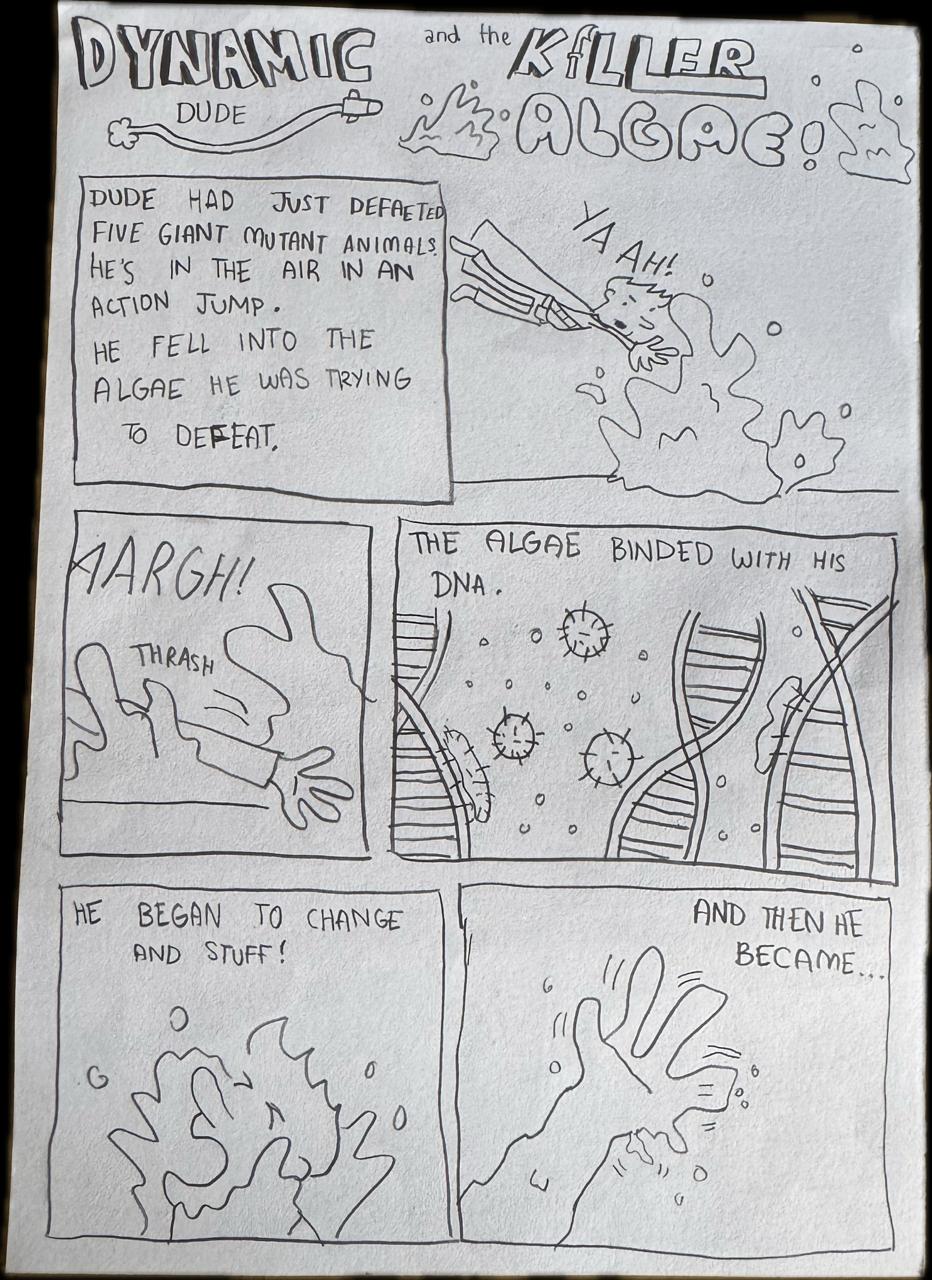 DYNAMIC
DUDE
and the KiLLER
ALGAE!
DUDE HAD JUST DEFAETED
FIVE GIANT MUTANT ANIMALS.
HE'S IN THE AIR IN AN
ACTION JUMP.
HE FELL INTO THE
ALGAE HE WAS TRYING
TO DEFEAT.
YAAH!
AARGH!
THRASH
THE ALGAE BINDED WITH HIS
DNA.
HE BEGAN TO CHANGE
AND STUFF!
AND THEN HE
BECAME...